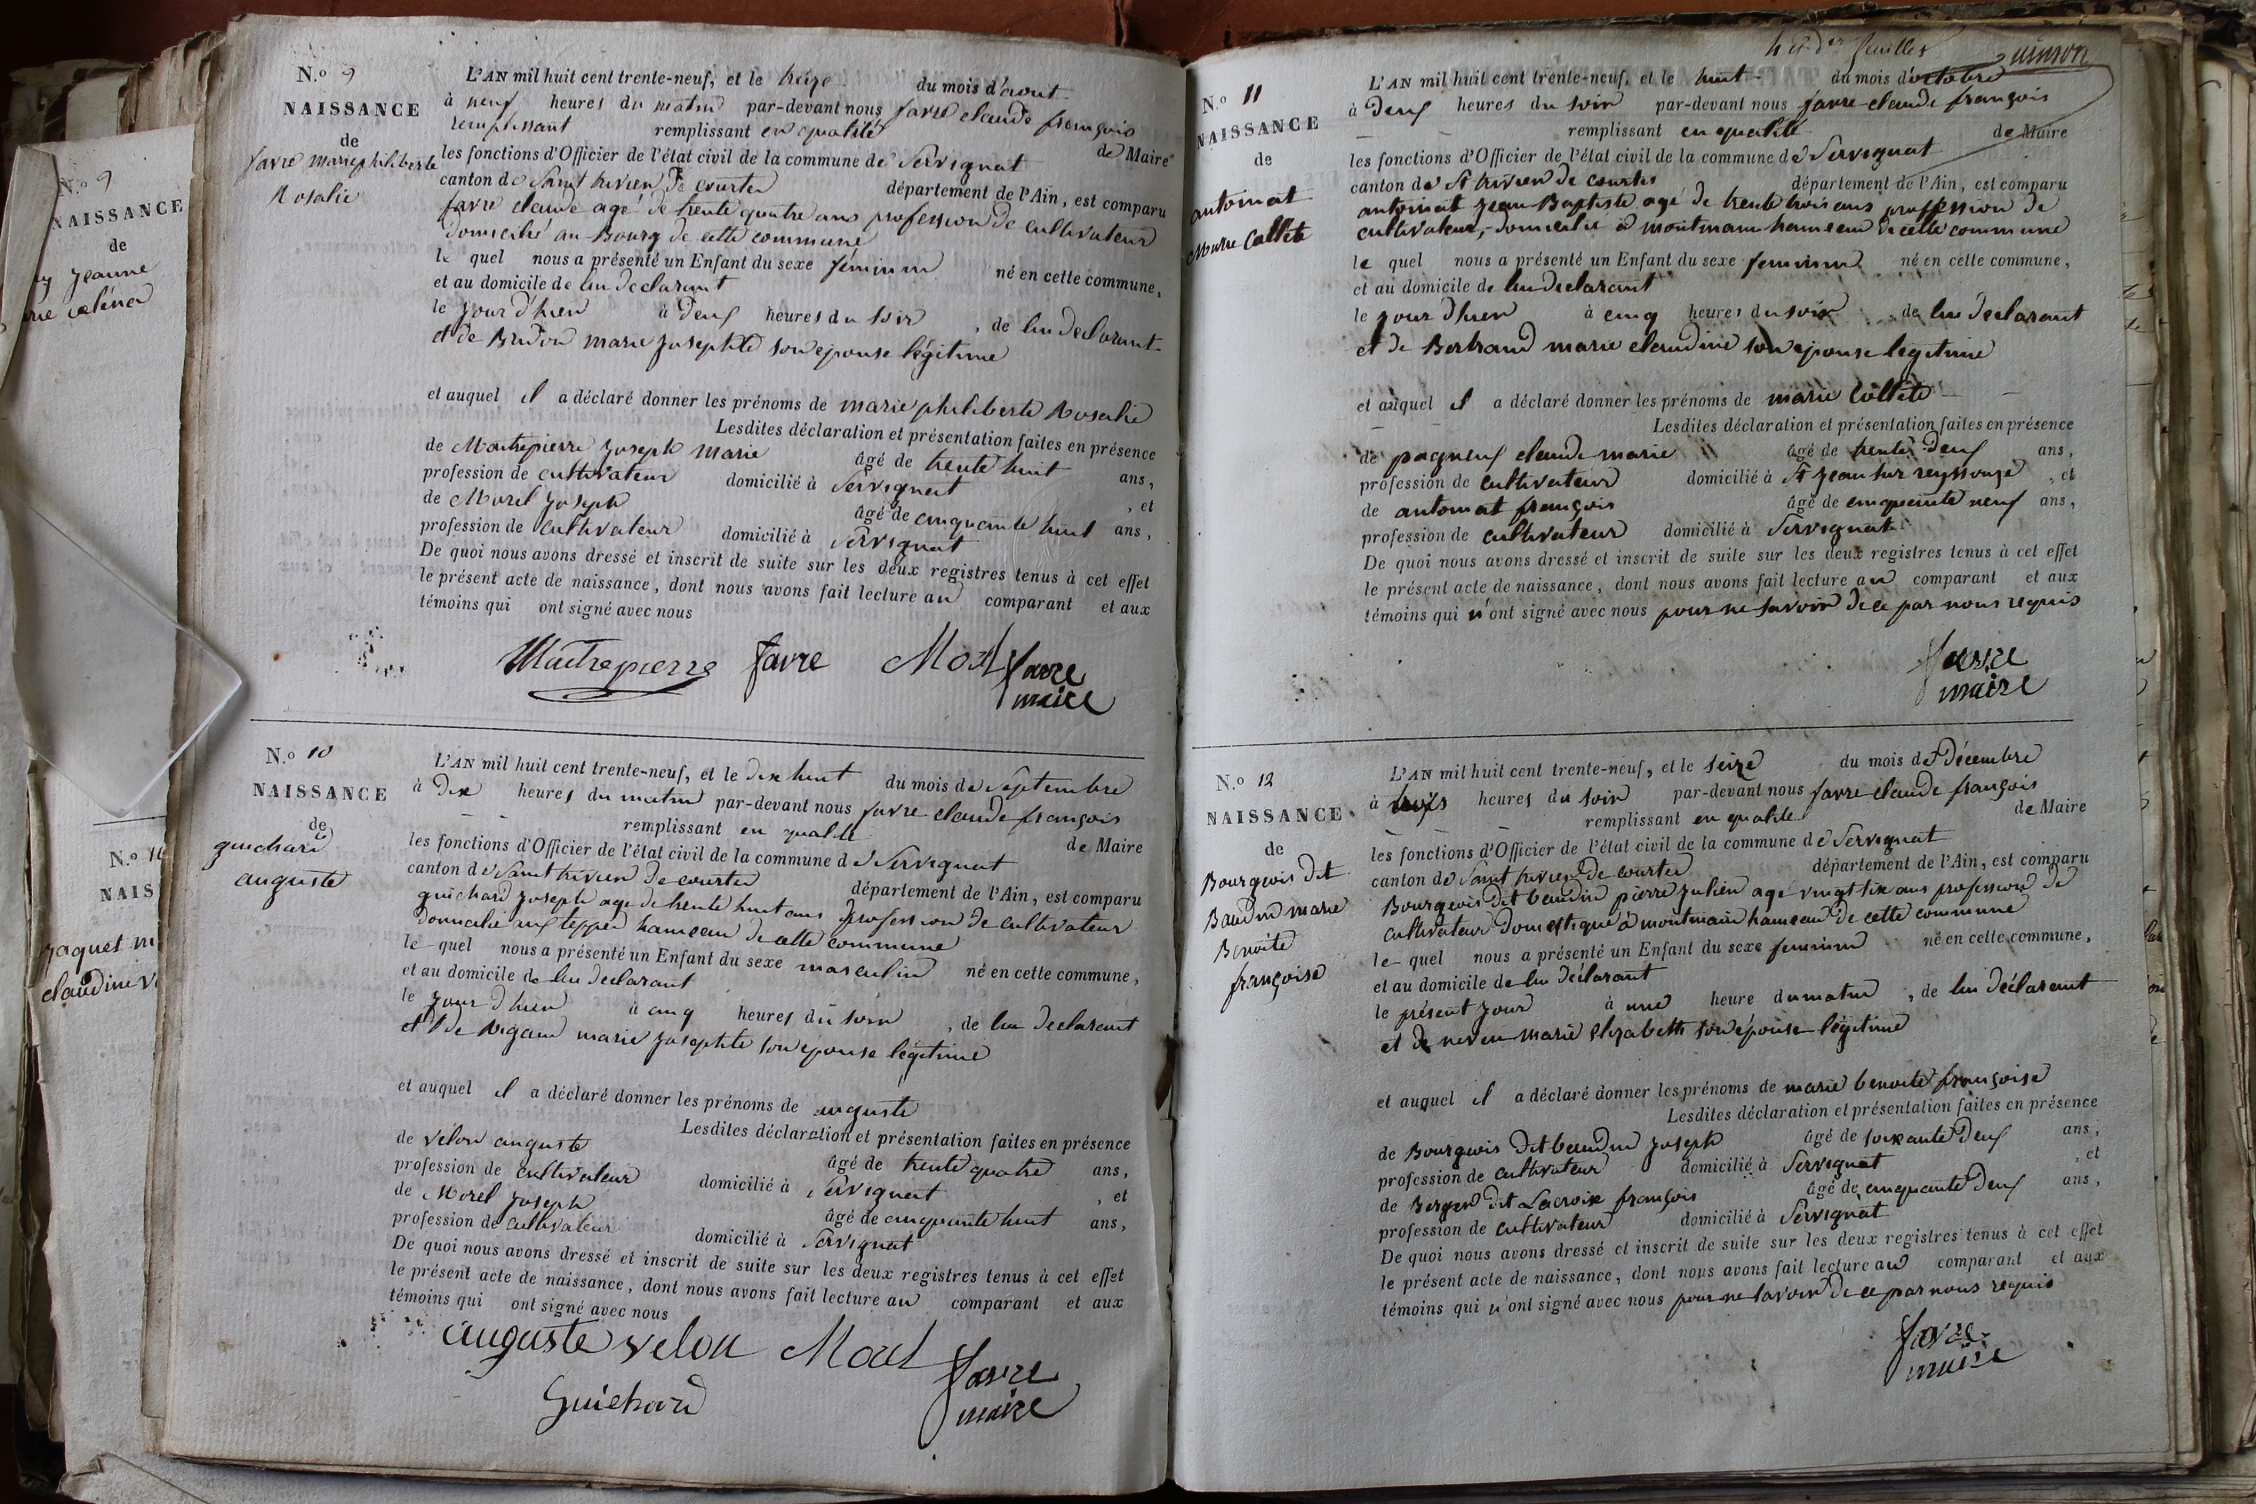 N.º 9
NAISSANCE
de
Jeanne
N.º
NAIS
paquet
claudine
N.º 9
NAISSANCE
de
favre marie philiberte
Rosalie
L'AN mil huit cent trente-neuf, et le treize du mois d'aout
à neuf heures du matin par-devant nous favre claude françois
remplissant remplissant en qualité de Maire
les fonctions d'Officier de l'état civil de la commune de Servignat
canton de Saint trivier de courtes département de l'Ain, est comparu
favre claude agé de trente quatre ans profession de cultivateur
domicilié au Bourg de cette commune
le quel nous a présenté un Enfant du sexe féminin né en cette commune,
et au domicile de lui declarant
le jour d'hier à deux heures du soir, de lui declarant
et de Bridon marie josephte son epouse légitime
et auquel il a déclaré donner les prénoms de marie philiberte Rosalie
Lesdites déclaration et présentation faites en présence
de Maitrepierre joseph marie âgé de trente huit ans,
profession de cultivateur domicilié à Servignat, et
de Morel joseph âgé de cinquante huit ans,
profession de cultivateur domicilié à Servignat
De quoi nous avons dressé et inscrit de suite sur les deux registres tenus à cet effet
le présent acte de naissance, dont nous avons fait lecture au comparant et aux
témoins qui ont signé avec nous
Maitrepierre favre Morel favre
maire
N.º 10
NAISSANCE
de
guichard
auguste
L'AN mil huit cent trente-neuf, et le dix huit du mois de Septembre
à dix heures du matin par-devant nous favre claude françois
remplissant en qualité de Maire
les fonctions d'Officier de l'état civil de la commune de Servignat
canton de Saint trivier de courtes département de l'Ain, est comparu
guichard joseph age de trente huit ans profession de cultivateur
domicilié aux teppes hameau de cette commune
le quel nous a présenté un Enfant du sexe masculin né en cette commune,
et au domicile de lui declarant
le jour d'hier à cinq heures du soir, de lui declarant
et de Rigaud marie josephte son epouse légitime
et auquel il a déclaré donner les prénoms de auguste
Lesdites déclaration et présentation faites en présence
de velon auguste âgé de trente quatre ans,
profession de cultivateur domicilié à Servignat, et
de Morel joseph âgé de cinquante huit ans,
profession de cultivateur domicilié à Servignat
De quoi nous avons dressé et inscrit de suite sur les deux registres tenus à cet effet
le présent acte de naissance, dont nous avons fait lecture au comparant et aux
témoins qui ont signé avec nous
auguste velon Morel favre
Guichard maire
feuillet
N.º 11
NAISSANCE
de
antoinat
Marie Collete
L'AN mil huit cent trente-neuf, et le huit du mois d'octobre
à deux heures du soir par-devant nous favre claude françois
remplissant en qualité de Maire
les fonctions d'Officier de l'état civil de la commune de Servignat
canton de St trivier de courtes département de l'Ain, est comparu
antoinat jean Baptiste agé de trente trois ans profession de
cultivateur, domicilié à montmain hameau de cette commune
le quel nous a présenté un Enfant du sexe feminin né en cette commune,
et au domicile de lui declarant
le jour d'hier à cinq heures du soir, de lui déclarant
et de Bertrand marie claudine son epouse légitime
et auquel il a déclaré donner les prénoms de marie Collete
Lesdites déclaration et présentation faites en présence
de pagneux claude marie âgé de trente deux ans,
profession de cultivateur domicilié à St jean sur reyssouze, et
de antoinat françois âgé de cinquante neuf ans,
profession de cultivateur domicilié à Servignat
De quoi nous avons dressé et inscrit de suite sur les deux registres tenus à cet effet
le présent acte de naissance, dont nous avons fait lecture au comparant et aux
témoins qui n'ont signé avec nous pour ne savoir de ce par nous requis
favre
maire
N.º 12
NAISSANCE
de
Bourgeois dit
Baudin marie
Benoite
françoise
L'AN mil huit cent trente-neuf, et le seize du mois de Décembre
à trois heures du soir par-devant nous favre claude françois
remplissant en qualité de Maire
les fonctions d'Officier de l'état civil de la commune de Servignat
canton de Saint trivier de courtes département de l'Ain, est comparu
Bourgeois dit baudin pierre julien agé vingt six ans profession de
cultivateur domestique à montmain hameau de cette commune
le quel nous a présenté un Enfant du sexe feminin né en cette commune,
et au domicile de lui déclarant
le présent jour à une heure du matin, de lui déclarant
et de neveu marie elizabeth son épouse légitime
et auquel il a déclaré donner les prénoms de marie benoite françoise
Lesdites déclaration et présentation faites en présence
de Bourgeois dit baudin joseph âgé de soixante deux ans,
profession de cultivateur domicilié à Servignat, et
de Berger dit Lacroix françois âgé de cinquante deux ans,
profession de cultivateur domicilié à Servignat
De quoi nous avons dressé et inscrit de suite sur les deux registres tenus à cet effet
le présent acte de naissance, dont nous avons fait lecture au comparant et aux
témoins qui n'ont signé avec nous pour ne savoir de ce par nous requis
favre
maire